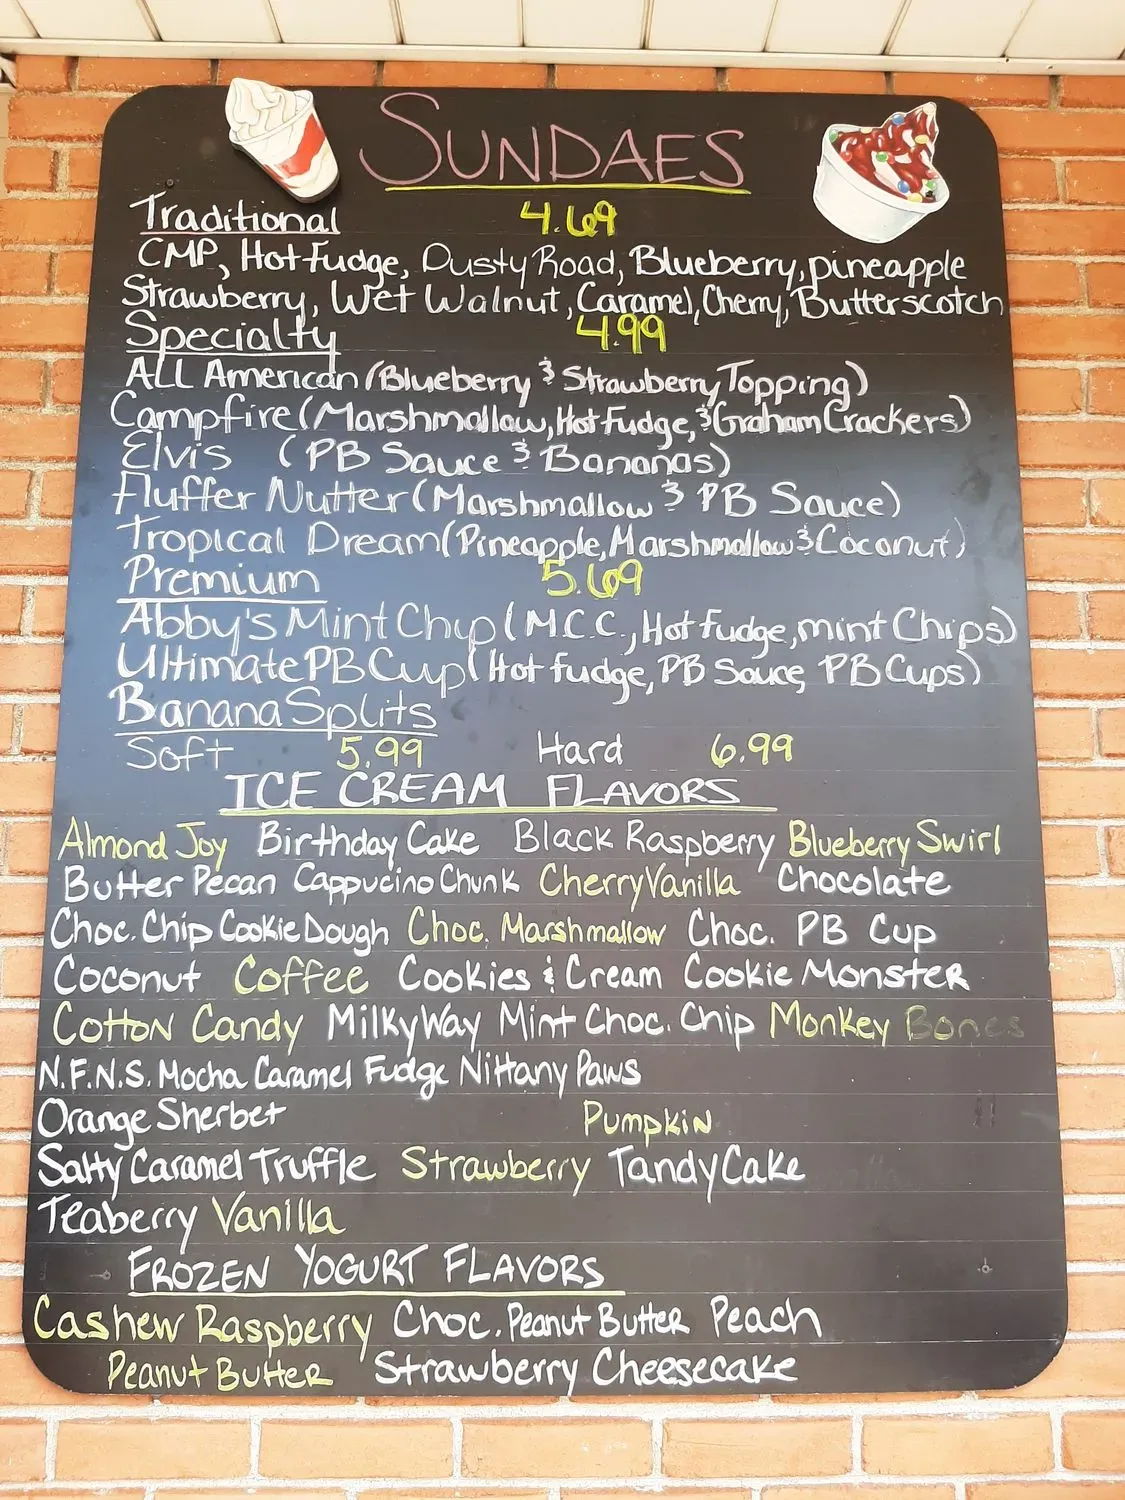 SUNDAES
Traditional 4.69
CMP, Hot Fudge, Dusty Road, Blueberry, pineapple
Strawberry, Wet Walnut, Caramel, Cherry, Butterscotch
Specialty 4.99
ALL American (Blueberry & Strawberry Topping)
Campfire (Marshmallow, Hot Fudge, & Graham Crackers)
Elvis (PB Sauce & Bananas)
Fluffer Nutter (Marshmallow & PB Sauce)
Tropical Dream (Pineapple, Marshmallow & Coconut)
Premium 5.69
Abby's Mint Chip (M.C.C., Hot fudge, mint Chips)
Ultimate PB Cup (Hot fudge, PB Sauce, PB Cups)
Banana Splits
Soft 5.99 Hard 6.99
ICE CREAM FLAVORS
Almond Joy Birthday Cake Black Raspberry Blueberry Swirl
Butter Pecan Cappucino Chunk Cherry Vanilla Chocolate
Choc. Chip Cookie Dough Choc. Marshmallow Choc. PB Cup
Coconut Coffee Cookies & Cream Cookie Monster
Cotton Candy Milky Way Mint Choc. Chip Monkey Bones
N.F.N.S. Mocha Caramel Fudge Nittany Paws
Orange Sherbet Pumpkin
Salty Caramel Truffle Strawberry Tandy Cake
Teaberry Vanilla
FROZEN YOGURT FLAVORS
Cashew Raspberry Choc. Peanut Butter Peach
Peanut Butter Strawberry Cheesecake